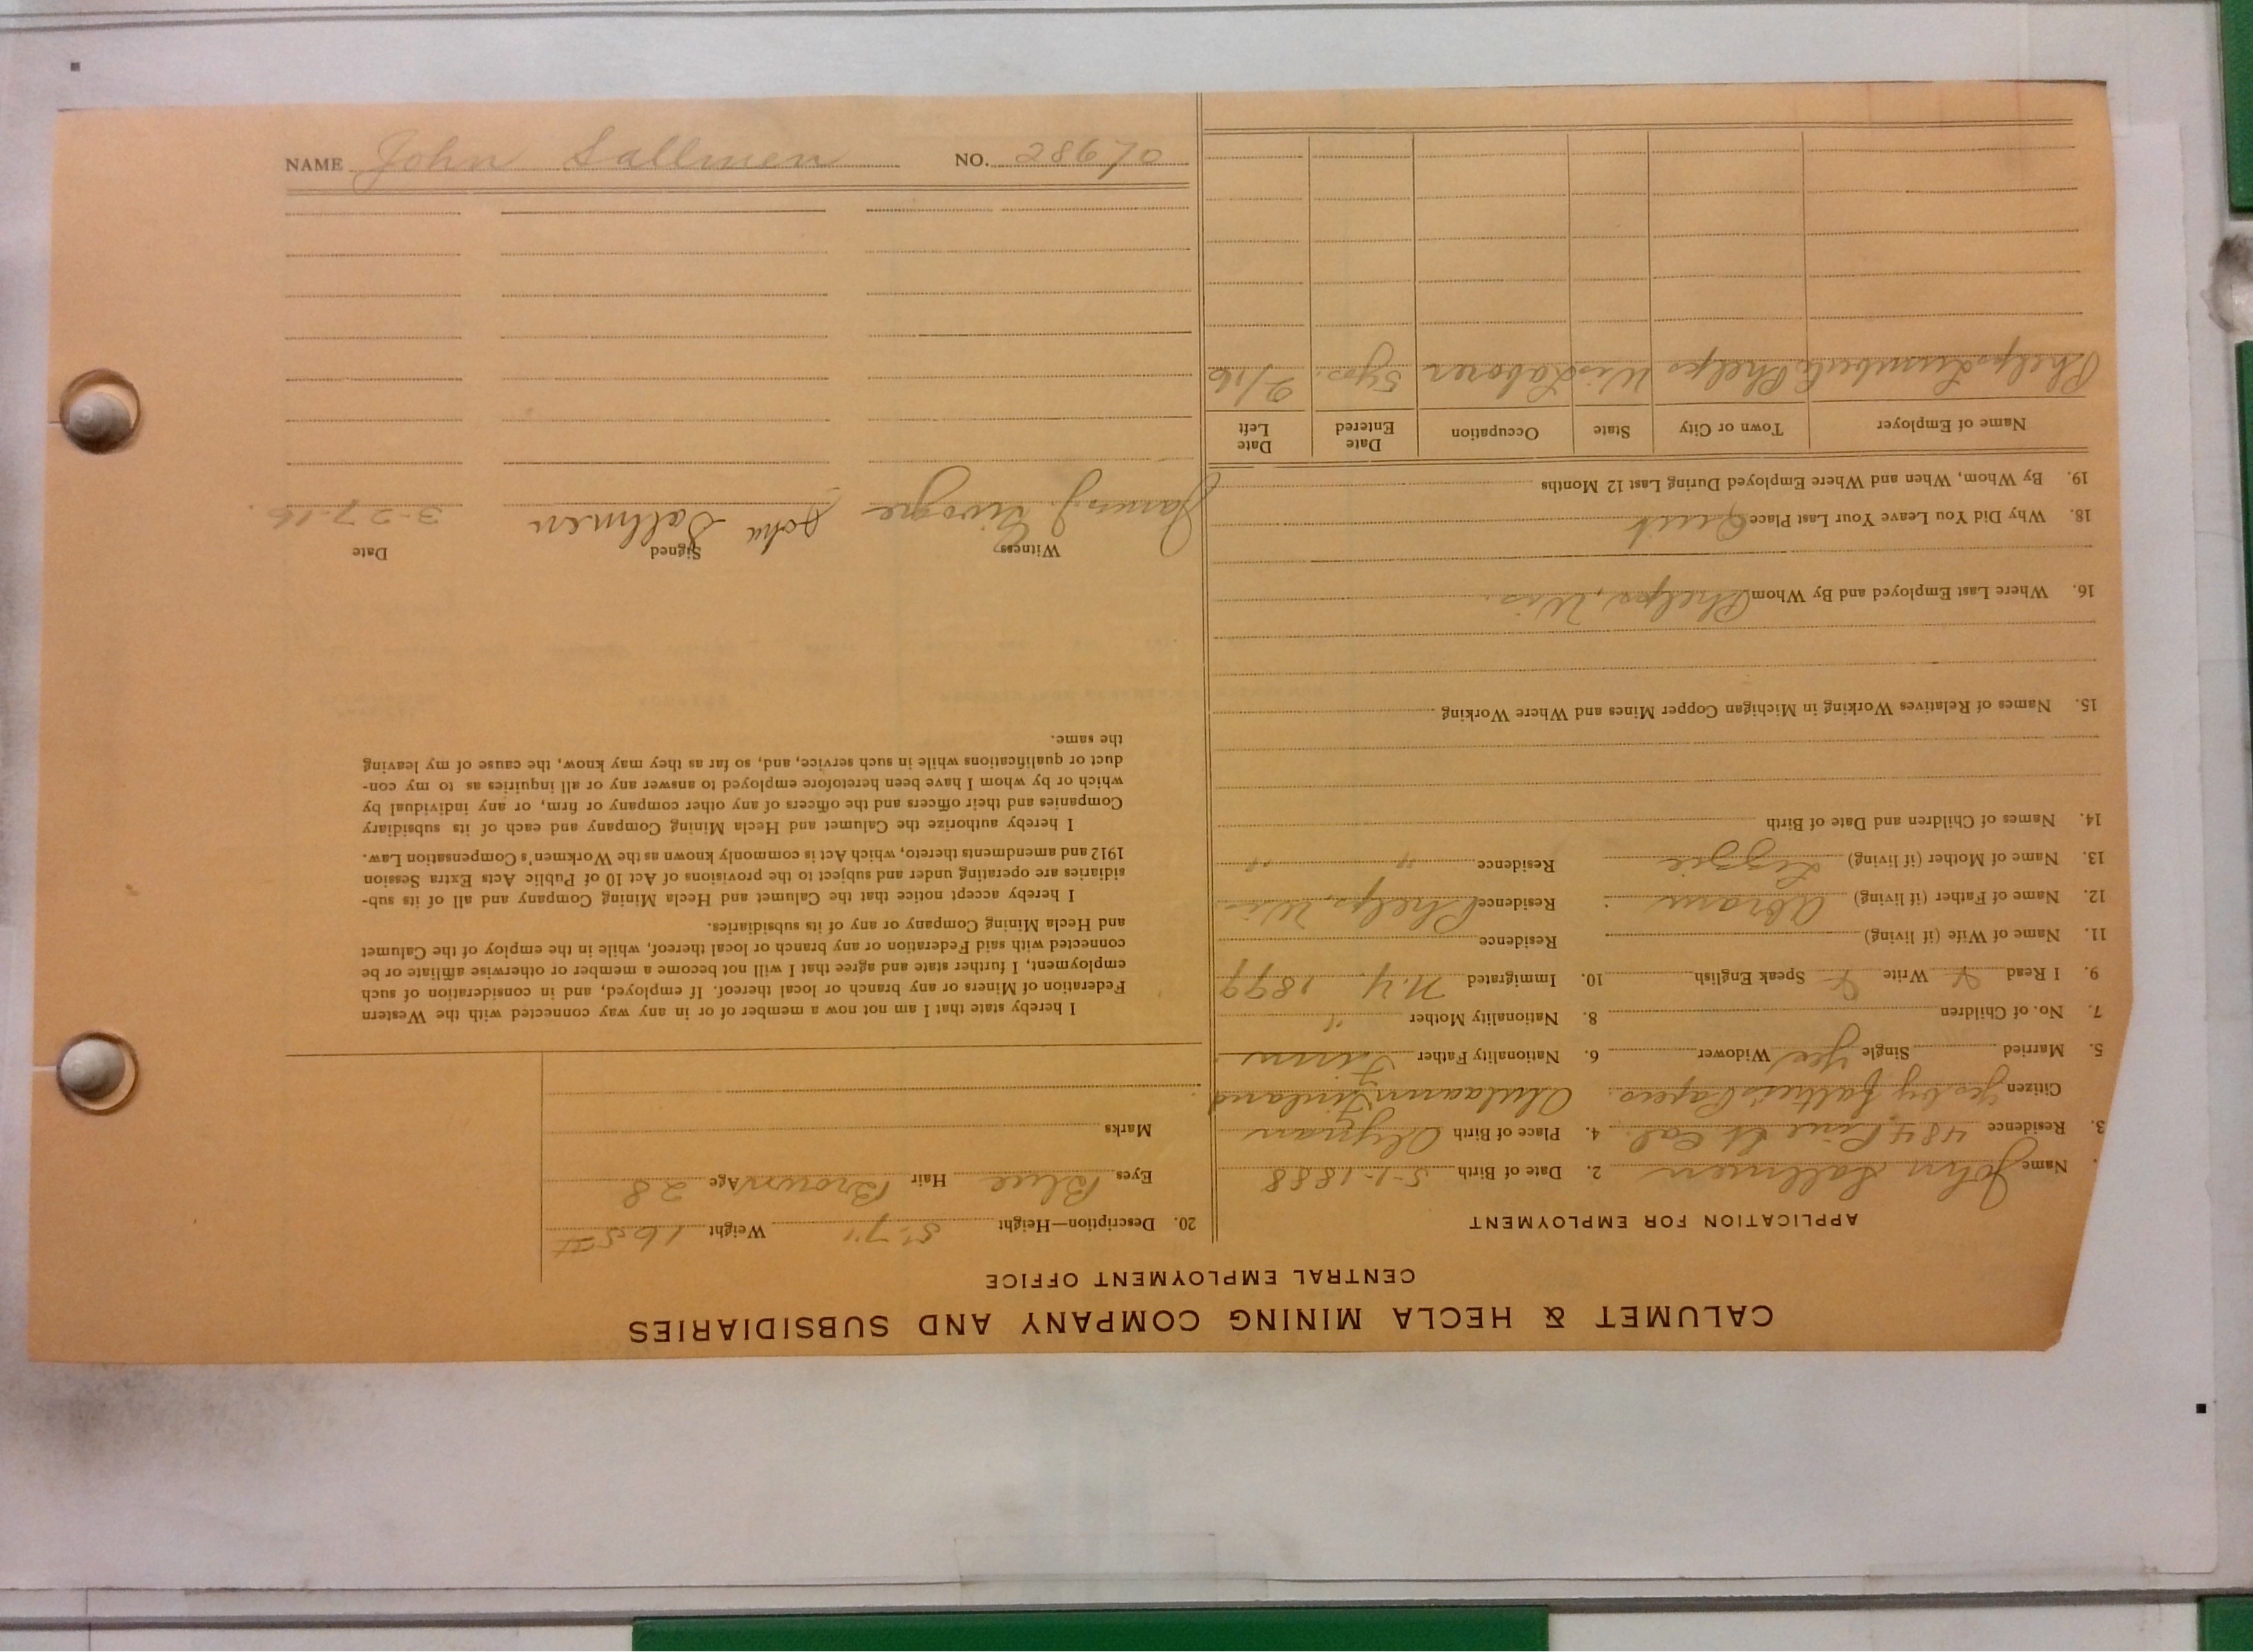 NAME John Sallmen NO. 28670
CALUMET & HECLA MINING COMPANY AND SUBSIDIARIES
CENTRAL EMPLOYMENT OFFICE
APPLICATION FOR EMPLOYMENT
Name John Sallmen 2. Date of Birth 5-1-1888
3. Residence 484 Pine St Cal. 4. Place of Birth
Citizen Yes by father's Papers. Finland
5. Married Single Yes Widower 6. Nationality Father Finn
7. No. of Children 8. Nationality Mother "
9. I Read Y Write Y Speak English 10. Immigrated N.Y. 1899
11. Name of Wife (if living) Residence
12. Name of Father (if living) Abram Residence Phelps, Wis
13. Name of Mother (if living) Lizzie Residence " "
14. Names of Children and Date of Birth
15. Names of Relatives Working in Michigan Copper Mines and Where Working
16. Where Last Employed and By Whom Phelps, Wis.
18. Why Did You Leave Your Last Place Quit
19. By Whom, When and Where Employed During Last 12 Months
Name of Employer Town or City State Occupation Date Entered Date Left
Phelps Lumber Co Phelps Wis Laborer 5 yrs. 2/16
20. Description—Height 5'-7" Weight 165 #
Eyes Blue Hair Brown Age 28
Marks
I hereby state that I am not now a member of or in any way connected with the Western
Federation of Miners or any branch or local thereof. If employed, and in consideration of such
employment, I further state and agree that I will not become a member or otherwise affiliate or be
connected with said Federation or any branch or local thereof, while in the employ of the Calumet
and Hecla Mining Company or any of its subsidiaries.
I hereby accept notice that the Calumet and Hecla Mining Company and all of its sub-
sidiaries are operating under and subject to the provisions of Act 10 of Public Acts Extra Session
1912 and amendments thereto, which Act is commonly known as the Workmen's Compensation Law.
I hereby authorize the Calumet and Hecla Mining Company and each of its subsidiary
Companies and their officers and the officers of any other company or firm, or any individual by
which or by whom I have been heretofore employed to answer any or all inquiries as to my con-
duct or qualifications while in such service, and, so far as they may know, the cause of my leaving
the same.
Witness Signed Date
James J. John Sallmen 3-27-16.